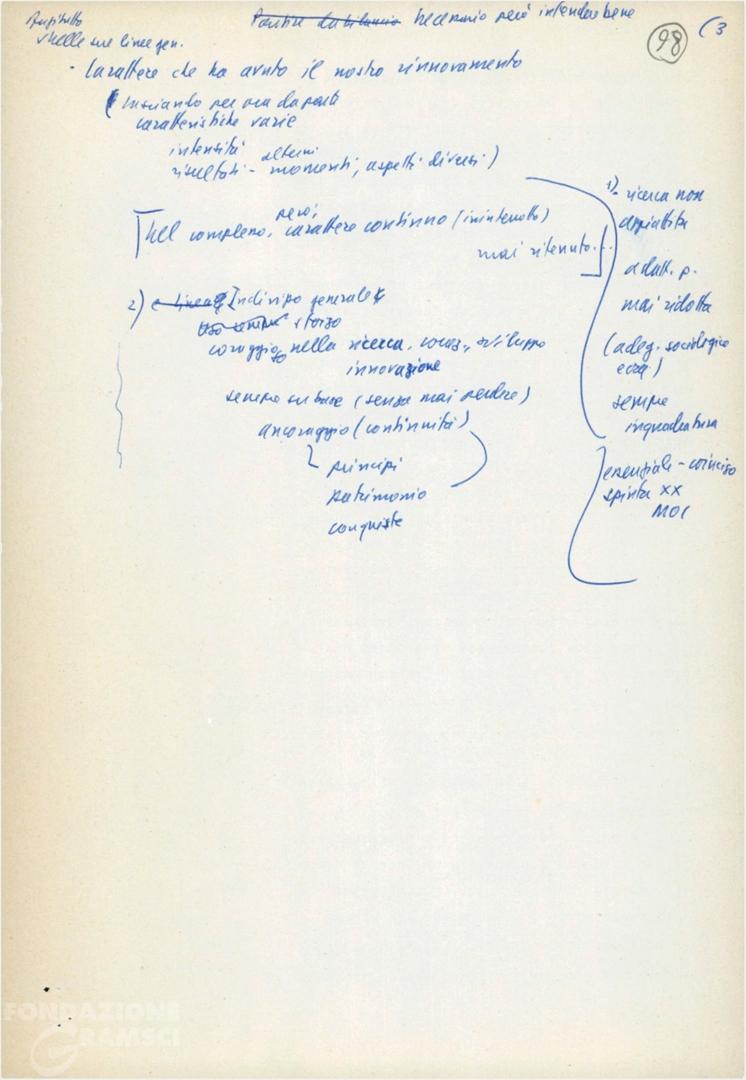 nelle sue linee gen.
Partire da bilancio necessario però intendersi bene
98
(3
- Carattere che ha avuto il nostro rinnovamento
(lasciando per ora da parte
caratteristiche varie
intensità
alterni
risultati - momenti, aspetti diversi)
però,
Nel complesso, carattere continuo (ininterrotto)
mai ritenuto...
2) Linea Indirizzo generale
Uso sempre sforzo
coraggioso nella ricerca, sviluppo
innovazione
sempre su base (senza mai perdere)
ancoraggio (continuità)
principi
patrimonio
conquiste
1) - ricerca non
appiattita
adatt. p.
mai ridotta
(adeg. sociologico
ecc.)
sempre
inquadratura
essenziale - coinciso
spinta XX
FONDAZIONE
GRAMSCI